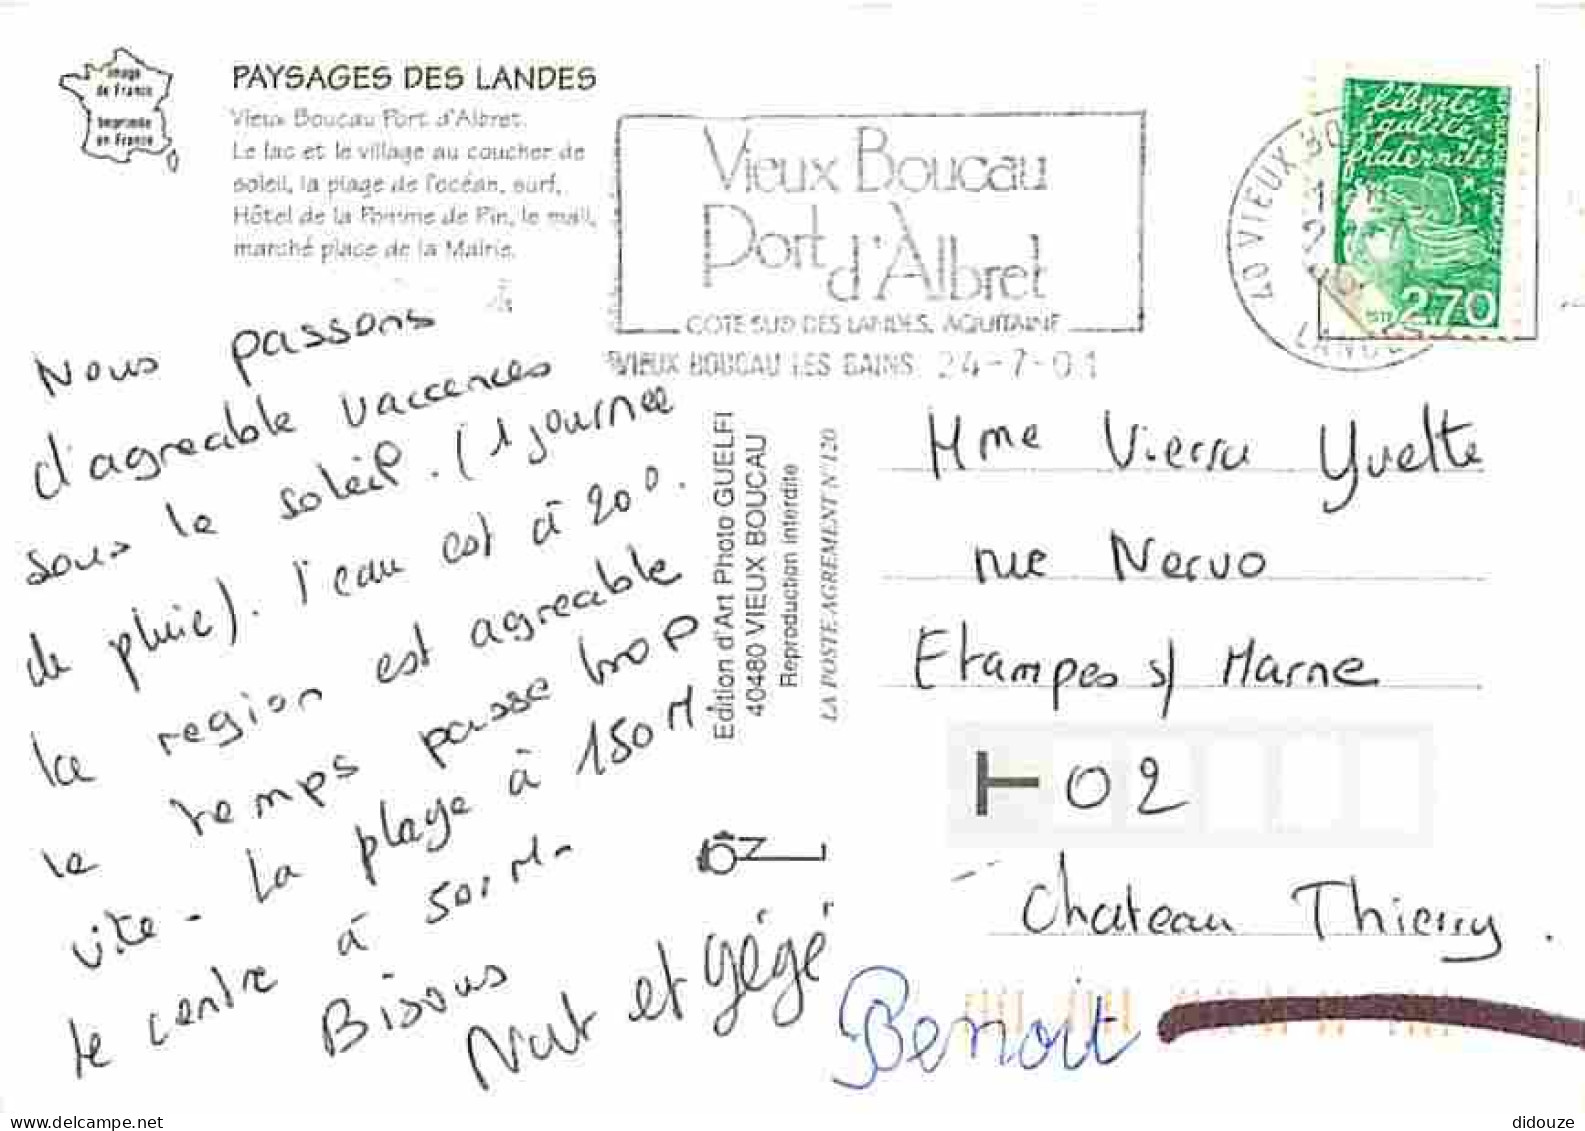 Image
de France
Imprimée
en France
PAYSAGES DES LANDES
Vieux Boucau Port d'Albret.
Le lac et le village au coucher de
soleil, la plage de l'océan, surf,
Hôtel de la Pomme de Pin, le mail,
marché place de la Mairie.
Vieux Boucau
Port d'Albret
COTE SUD DES LANDES. AQUITAINE
VIEUX BOUCAU LES BAINS 24-7-01
40 VIEUX BO
LANDES
liberté
égalité
fraternité
2,70
Nous passons
d'agreable vaccences
sous le soleil. (1 journee
de pluie). l'eau est à 20°.
la region est agreable
le temps passe trop
vite - la plage à 150 M.
le centre à 50 M-
Bisous
Nat et gégé
Benoit
Edition d'Art Photo GUELFI
40480 VIEUX BOUCAU
Reproduction interdite
LA POSTE AGREMENT N°120
Mme Vieru Yvette
rue Nervo
Etampes s/ Marne
02
Chateau Thierry.
didouze